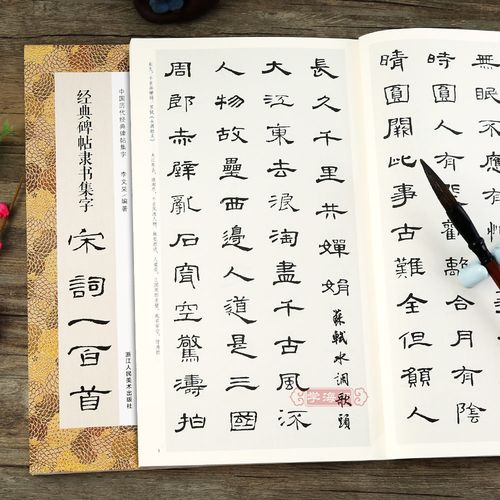 無眠不應有
時圓人有悲歡離合月有陰
晴圓闕此事古難全但願人
長久千里共嬋娟
蘇軾水調歌頭
大江東去浪淘盡千古風流
人物故壘西邊人道是三國
周郎赤壁亂石穿空驚濤拍
学海
中国历代经典碑帖集字
李文采/编著
经典碑帖隶书集字
宋詞一百首
浙江人民美术出版社